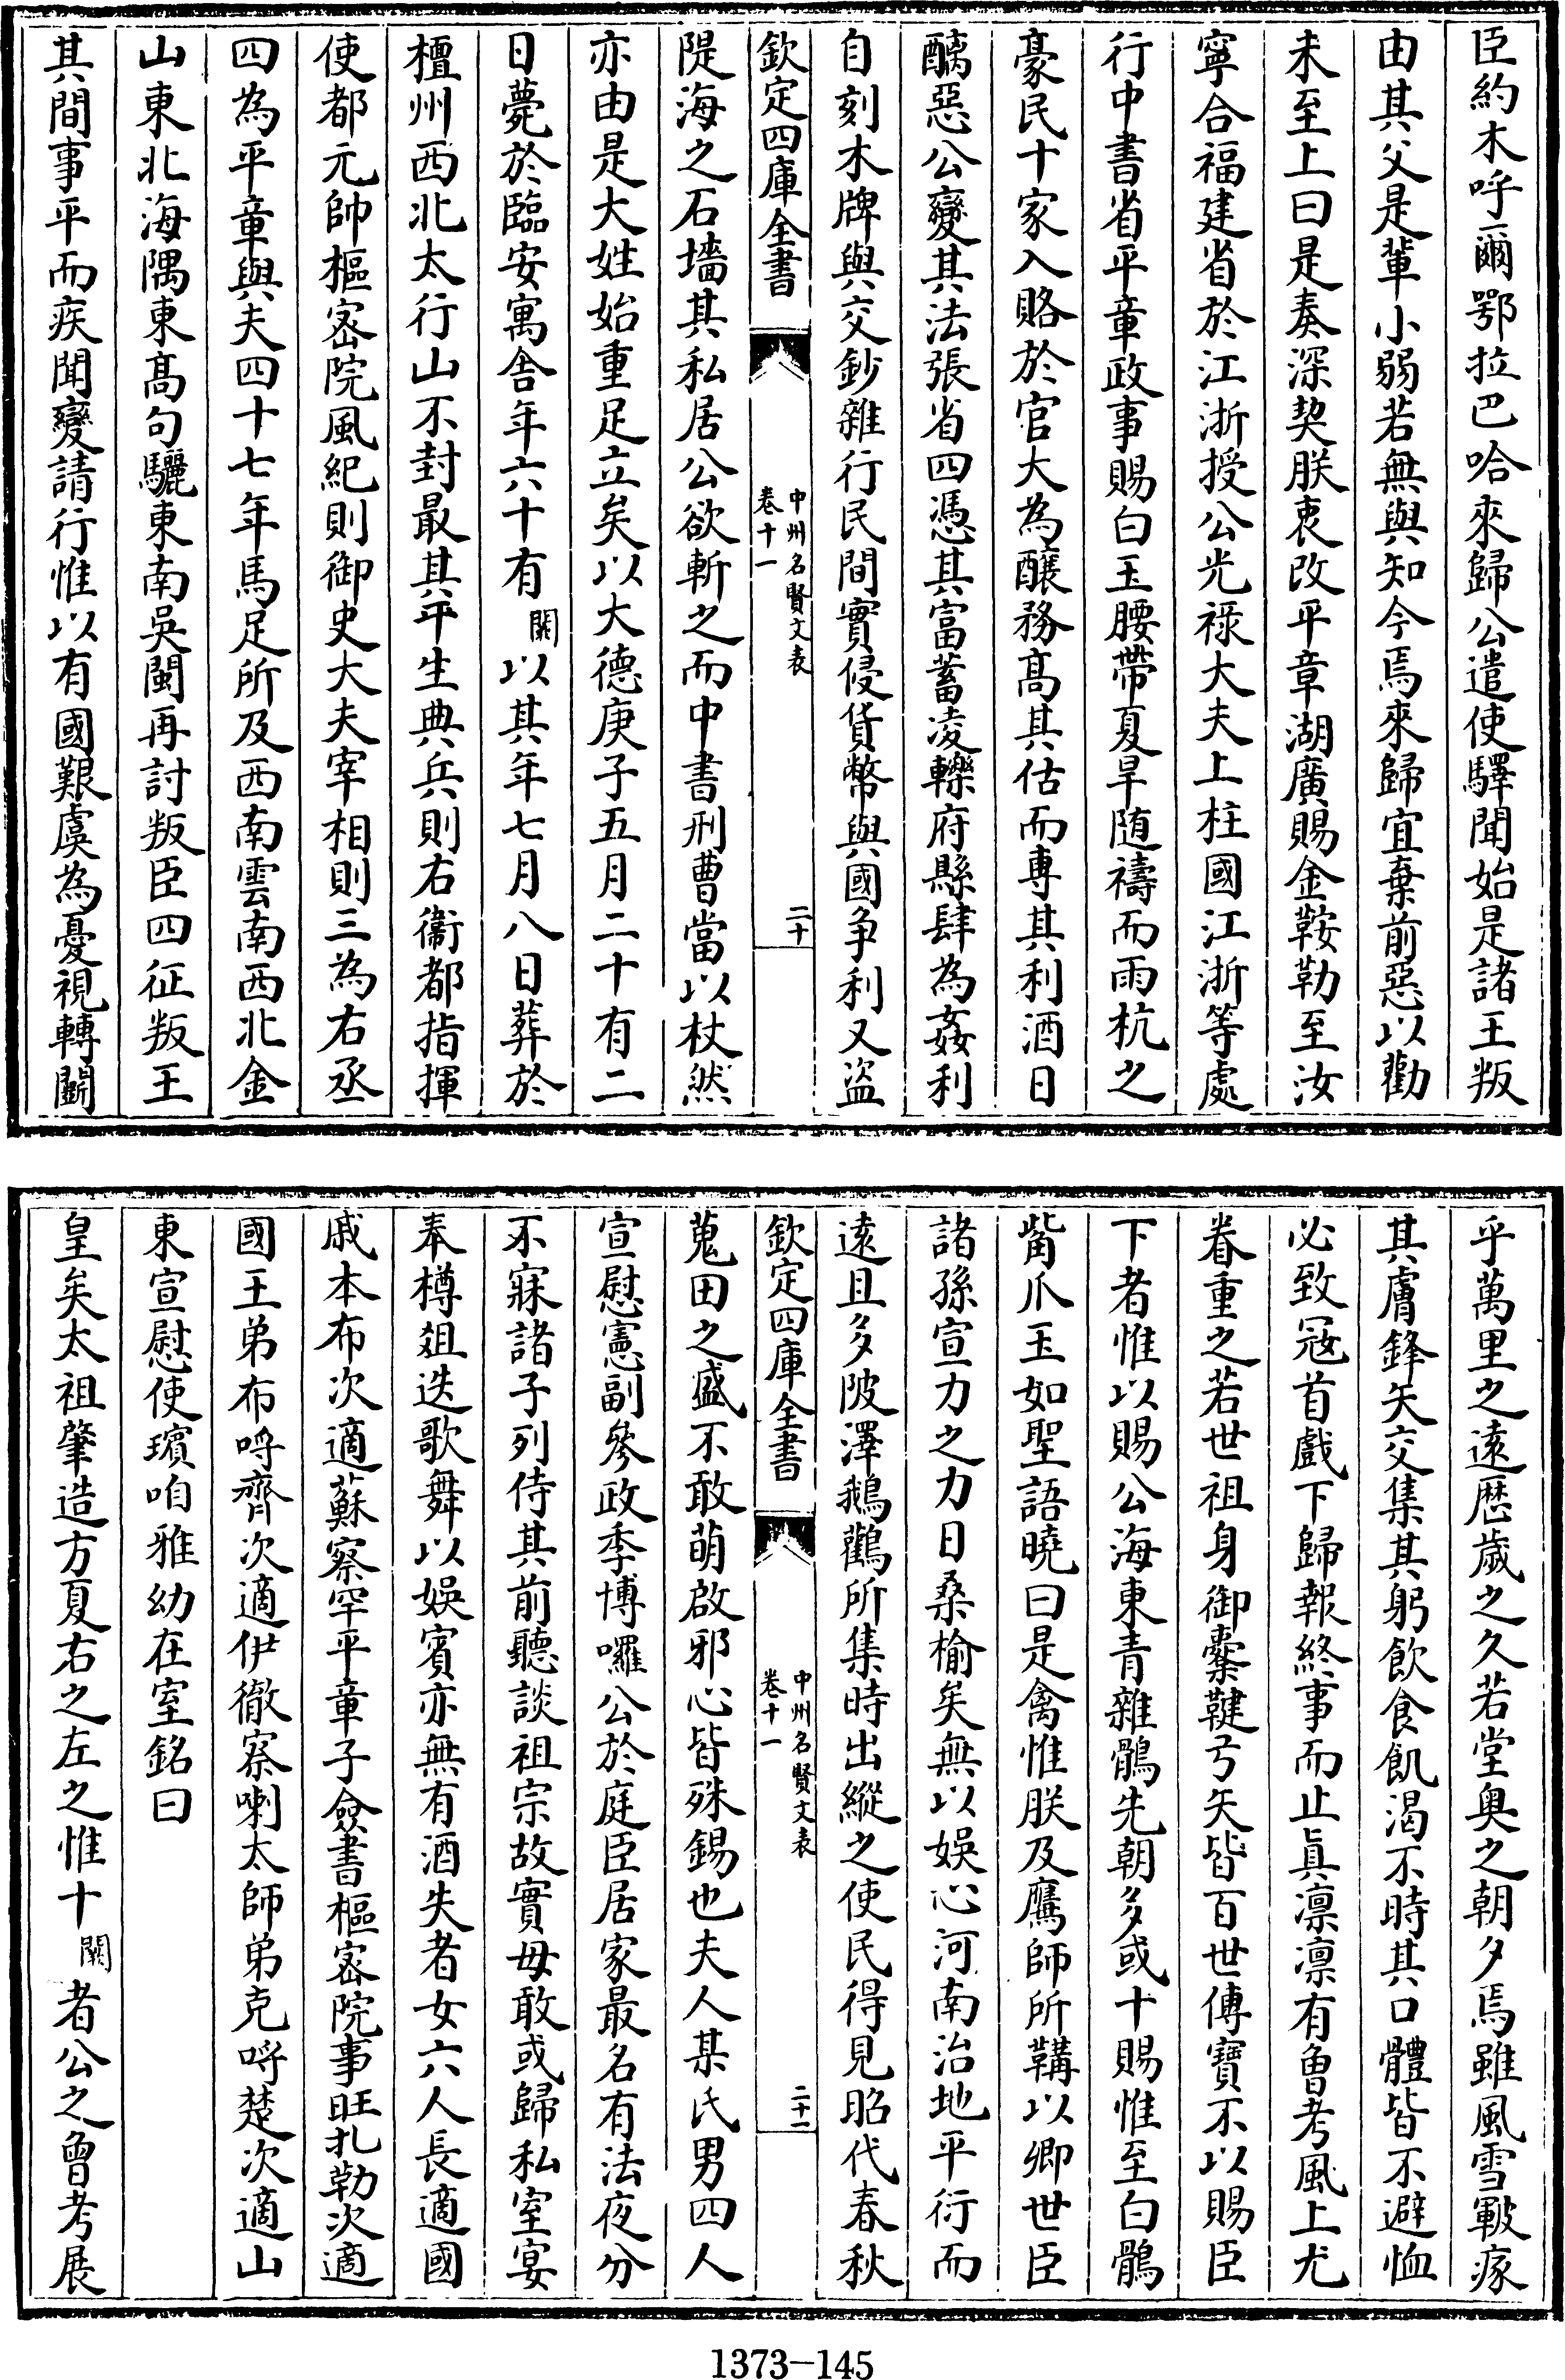 臣約木呼爾鄂拉巴哈來歸公遣使驛聞始是諸王叛
由其父是輩小弱若無與知今焉來歸宜棄前惡以勸
未至上曰是奏深契朕衷改平章湖廣賜金鞍勒至汝
寧合福建省於江浙授公光祿大夫上柱國江浙等處
行中書省平章政事賜白玉腰帶夏旱随禱而雨杭之
豪民十家入賂於官大為釀務髙其估而專其利酒日
醨惡公變其法張省四憑其富蓄凌轢府縣肆為姦利
自刻木牌與交鈔雜行民間實侵貨幣與國争利又盜
欽定四庫全書
中州名賢文表
卷十一
二十
隄海之石墻其私居公欲斬之而中書刑曹當以杖然
亦由是大姓始重足立矣以大德庚子五月二十有二
日薨於臨安寓舍年六十有闕以其年七月八日葬於
檀州西北太行山不封最其平生典兵則右衞都指揮
使都元帥樞宻院風紀則御史大夫宰相則三為右丞
四為平章與夫四十七年馬足所及西南雲南西北金
山東北海隅東髙句驪東南吳閩再討叛臣四征叛王
其間事平而疾聞變請行惟以有國艱虞為憂視轉闘
乎萬里之逺歴歲之久若堂奥之朝夕焉雖風雪皸瘃
其膚鋒矢交集其躬飲食飢渴不時其口體皆不避恤
必致冦首戲下歸報終事而止真凛凛有魯考風上尤
眷重之若世祖身御櫜鞬弓矢皆百世傳寶不以賜臣
下者惟以賜公海東青雜鶻先朝多或十賜惟至白鶻
觜爪玉如聖語曉曰是禽惟朕及鷹師所鞲以卿世臣
諸孫宣力之力日桑榆矣無以娱心河南治地平衍而
逺且多陂澤鵝鸛所集時出縱之使民得見昭代春秋
欽定四庫全書
中州名賢文表
卷十一
二十一
蒐田之盛不敢萌啟邪心皆殊錫也夫人某氏男四人
宣慰憲副參政季博囉公於庭臣居家最名有法夜分
不寐諸子列侍其前聽談祖宗故實毋敢或歸私室宴
奉樽俎迭歌舞以娱賓亦無有酒失者女六人長適國
戚本布次適蘇察罕平章子僉書樞宻院事旺扎勒次適
國王弟布呼齊次適伊徹察喇太師弟克呼楚次適山
東宣慰使瓆咱雅幼在室銘曰
皇矣太祖肇造方夏右之左之惟十闕者公之曾考展
1373—145